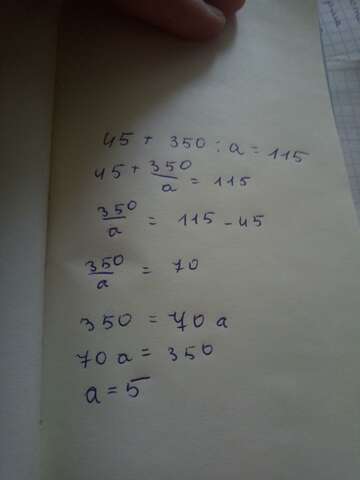 45 + 350 : a = 115
45 + 350/a = 115
350/a = 115 - 45
350/a = 70
350 = 70 a
70 a = 350
a = 5